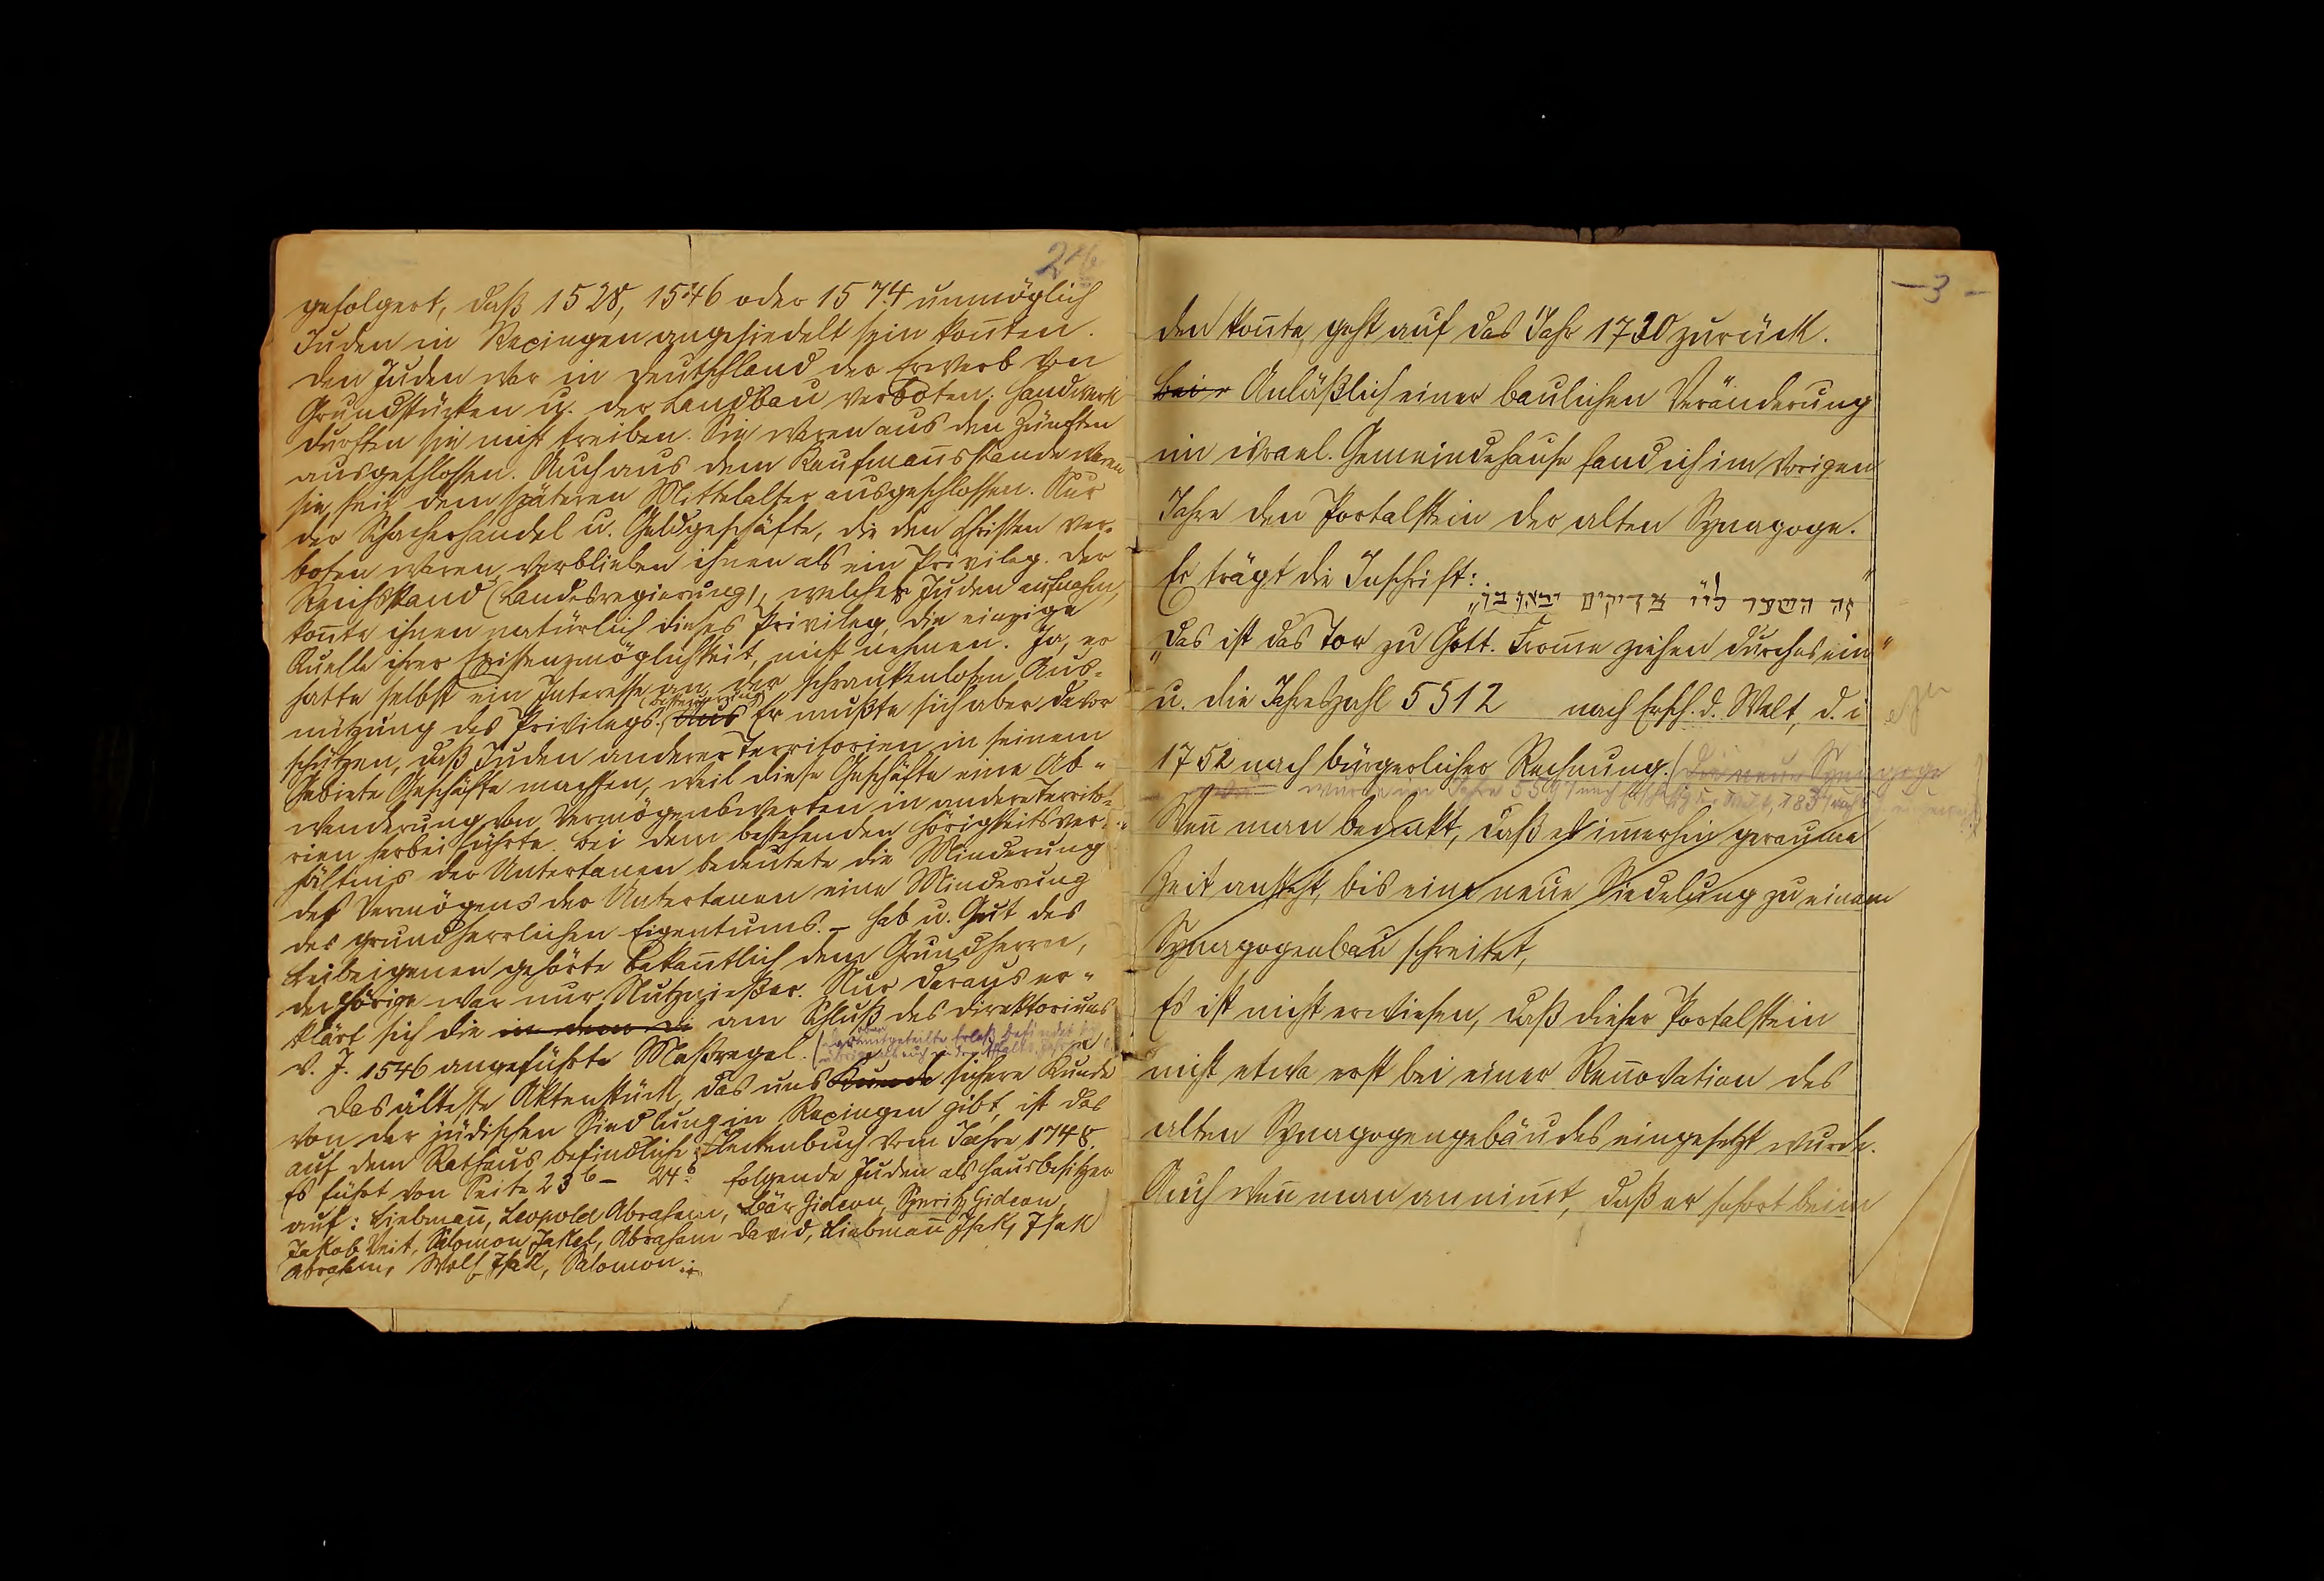 24b
gefolgert, daß 1528, 1546 oder 1574 unmöglich
Juden in Rexingen angesiedelt sein konnten.
Den Juden war in Deutschland der Erwerb von
Grundstücken u. der Landbau verboten; Handwerk
durften sie nicht treiben. Sie waren aus den Zünften
ausgeschlossen. Auch aus dem Kaufmannsstande waren
sie seit dem späteren Mittelalter ausgeschlossen. Nur
der Schacherhandel u. Geldgeschäfte, die den Christen ver-
boten waren, verblieben ihnen als ein Privileg. Der
Reichsstand (Landesregierung), welcher Juden aufnahm,
konnte ihnen natürlich dieses Privileg, die einzige
Quelle ihrer Existenzmöglichkeit, nicht nehmen. Ja, er
hatte selbst ein Interesse an der schrankenlosen Aus-
(Besteuerung)
nützung des Privilegs. Aus Er mußte sich aber davor
schützen, daß Juden anderer Territorien in seinem
Gebiete Geschäfte machten, weil diese Geschäfte eine Ab-
wanderung von Vermögenswerten in andere Territo-
rien herbeiführte. Bei dem bestehenden Hörigkeitsver-
hältnis der Untertanen bedeutete die Minderung
des Vermögens der Untertanen eine Minderung
des grundherrlichen Eigentums. – Hab u. Gut des
Leibeigenen gehörte bekanntlich dem Grundherrn,
der Hörige war nur Nutznießer. Nur daraus er-
klärt sich die in dem am Schluß des Direktoriums
v. J. 1546 angeführte Maßregel.
Das älteste Aktenstück, das uns Kunde sichere Kunde
von der jüdischen Siedlung in Rexingen gibt, ist das
auf dem Rathaus befindliche Fleckenbuch vom Jahre 1748.
Es führt von Seite 23b – 24b folgende Juden als Hausbesitzer
auf: Liebmann, Leopold Abraham, Bär Gideon, Spritz Gideon,
Jakob Veit, Salomon Jakob, Abraham David, Liebmann Isak, Isak
Abraham, Wolf Isak, Salomon
– 3 –
den konnte, geht auf das Jahr 1720 zurück.
bei Anläßlich einer baulichen Veränderung
im israel. Gemeindehause fand ich im vorigen
Jahre den Portalstein der alten Synagoge.
Er trägt die Inschrift:
זה השער ליי צדיקים יבאו בו
„Das ist das Tor zu Gott. Fromme ziehen durch es ein“
u. die Jahreszahl 5512 nach Ersch. d. Welt, d. i
1752 nach bürgerlicher Rechnung. (Die neue Synagoge
wurde im Jahre
Wenn man bedenkt, daß es immerhin geraume
Zeit ansteht, bis eine neue Siedelung zu einem
Synagogenbau schreitet,
Es ist nicht erwiesen, daß dieser Portalstein
nicht etwa erst bei einer Rennovation des
alten Synagogengebäudes eingesetzt wurde.
Auch wenn man annimmt, daß er sofort beim